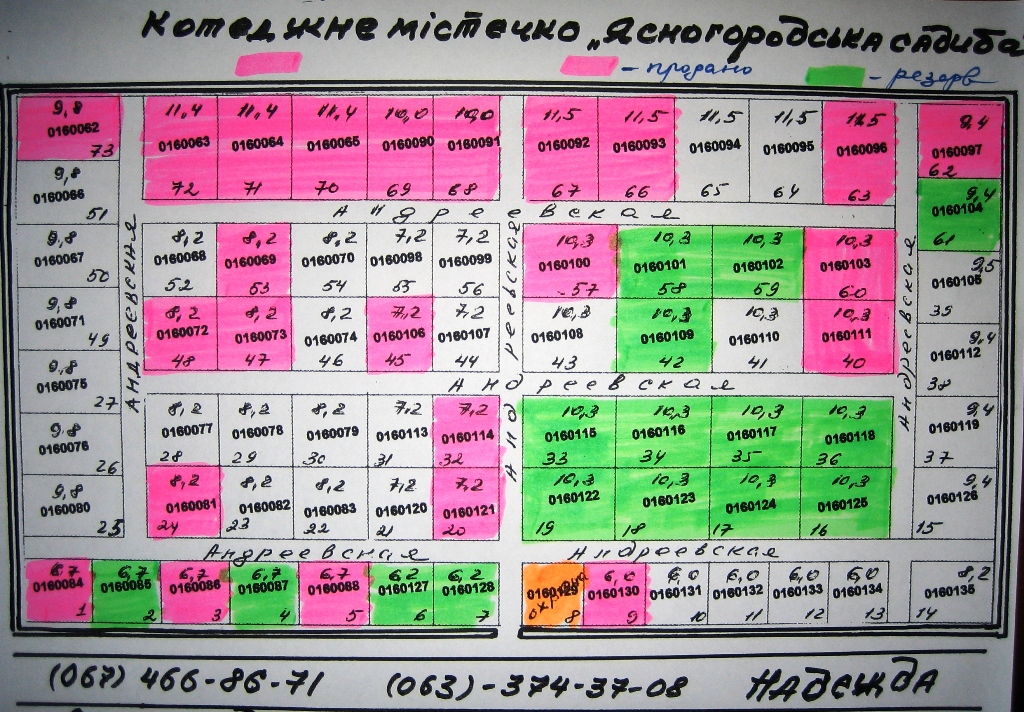 Котеджне містечко „Ясногородська садиба
- продано - резерв
9,8 11,4 11,4 11,4 10,0 10,0 11,5 11,5 11,5 11,5 11,5 9,4
0160062 0160063 0160064 0160065 0160090 0160091 0160092 0160093 0160094 0160095 0160096 0160097
73 72 71 70 69 68 67 66 65 64 63 62
9,8 9,4
0160066 0160104
51 61
Андреевская
Андреевская
Андреевская
Андреевская
9,8 8,2 8,2 8,2 7,2 7,2 10,3 10,3 10,3 10,3 9,5
0160067 0160068 0160069 0160070 0160098 0160099 0160100 0160101 0160102 0160103 0160105
50 52 53 54 55 56 57 58 59 60 39
9,8 8,2 8,2 8,2 7,2 7,2 10,3 10,3 10,3 10,3 9,4
0160071 0160072 0160073 0160074 0160106 0160107 0160108 0160109 0160110 0160111 0160112
49 48 47 46 45 44 43 42 41 40 38
Андреевская
9,8
0160075
27
9,8 8,2 8,2 8,2 7,2 7,2 10,3 10,3 10,3 10,3 9,4
0160076 0160077 0160078 0160079 0160113 0160114 0160115 0160116 0160117 0160118 0160119
26 28 29 30 31 32 33 34 35 36 37
9,8 8,2 8,2 8,2 7,2 7,2 10,3 10,3 10,3 10,3 9,4
0160080 0160081 0160082 0160083 0160120 0160121 0160122 0160123 0160124 0160125 0160126
25 24 23 22 21 20 19 18 17 16 15
Андреевская Андреевская
6,7 6,7 6,7 6,7 6,7 6,2 6,2 охрана 6,0 6,0 6,0 6,0 6,0 8,2
0160084 0160085 0160086 0160087 0160088 0160127 0160128 0160129 0160130 0160131 0160132 0160133 0160134 0160135
1 2 3 4 5 6 7 8 9 10 11 12 13 14
(067) 466-86-71 (063)-374-37-08 НАДЕЖДА